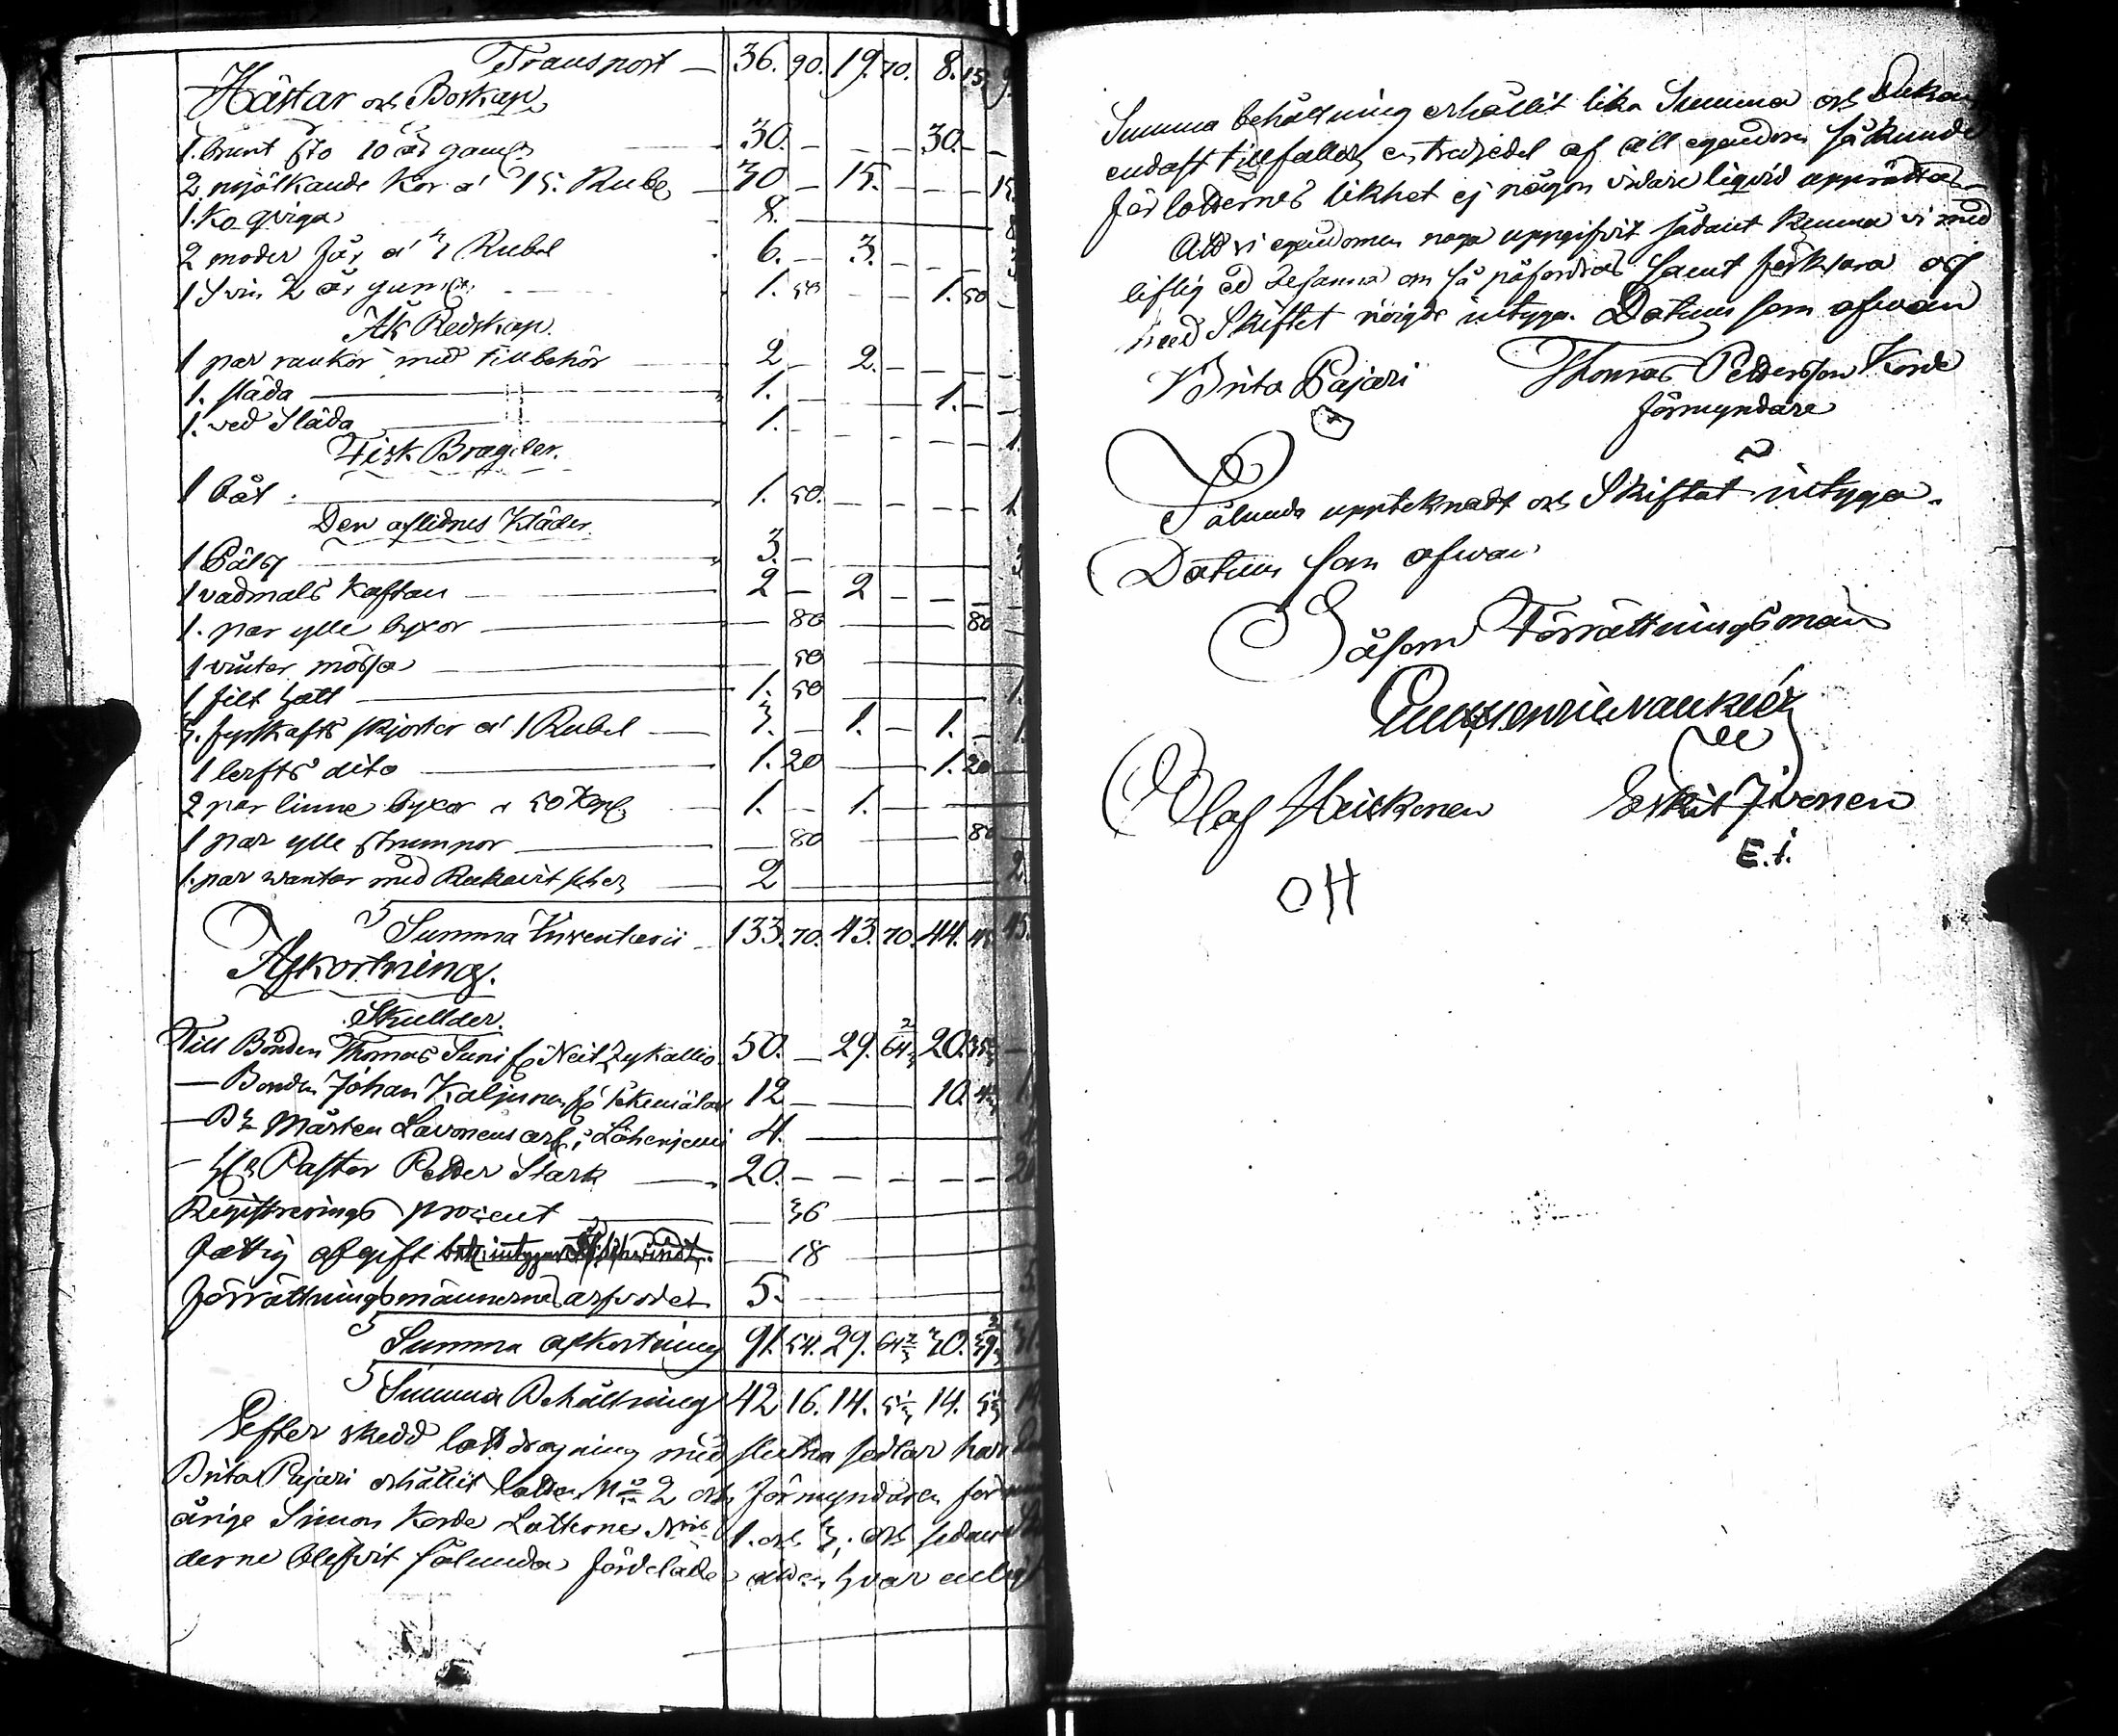 Transport 36. 90. 19. 70. 8. 15
Hästar och Boskap
1. brunt sto 10 år gam 30. 30.
2 mjölkande kor a' 15. Rube 30 15. 15
1. ko qviga 8. 8
2 moder får a' 3 Rubel 6. 3. 3
1 Svin 2 år gam 1. 50 1. 50
Åk Redskap.
1 par rankor med tillbehör 2 2.
1. släda 1. 1.
1. ved Släda 1. 1.
Fisk Brag
1 båt 1. 50. 1
Den aflidnes Kläder
1 Päls 3. 3
1 vadmals Kaftan 2 2
1. par ylle byxor 80 80
1 vinter mössa 50
1 filt hatt 1. 50 1.
3. fyrskafts skjortor a' 1 Rubel 3. 1. 1. 1.
1 lerfts dito 1. 20 1. 20
2 par linne byxor a 50 Kop 1. 1.
1 par ylle strumpor 80 80
1. par wantar med 2 2.
Summa Inventarii 133. 70. 43. 70. 44. 45 45.
Afkortning.
Skullder.
Till Bonden Thomas Suni 50. 29. 64 2/3 20. 35
Bonden Johan Kaljunen 12 10. 1.
Mårten Lavonens arf i 4. 4
Pastor Petter Stark 20. 20
Registrerings procent 36
fattig afgift 18
förrättningsmännernes arfvode 5. 5
Summa afkortning 91. 54. 29. 64 2/3 30. 39 2/3 31.
Summa Behållning 42 16. 14. 5 1/3 14. 5 1/3 14
Efter skedd lottdragning med slutna sedlar har
Brita Pajari erhållit lotten No 2 och förmyndaren för
årige Simon Korde Lotterne Nris 1. och 3, och sedan
derne blefvit sålunda fördelade hvar enligt
Summa behållning erhållit lika Summa och Enkan
endast tillfallen en tredjedel af all egendom så kunde
för lotternes likhet ej någon vidare liqvid upprättas
Att vi egendomen noga uppgifvit sådant kunna vi med
liflig ed besanna om så påfordras samt förklara oss
med Skiftet nöigde intyga. Datum som ofwan
Brita Pajari Thomas Pettersson Korde
förmyndare
Sålunda uppteknadt och Skiftat intyga.
Datum som ofwan
Såsom Förrättningsmän
Olof Heiskonen Eskil Ivonen
OH E. i.